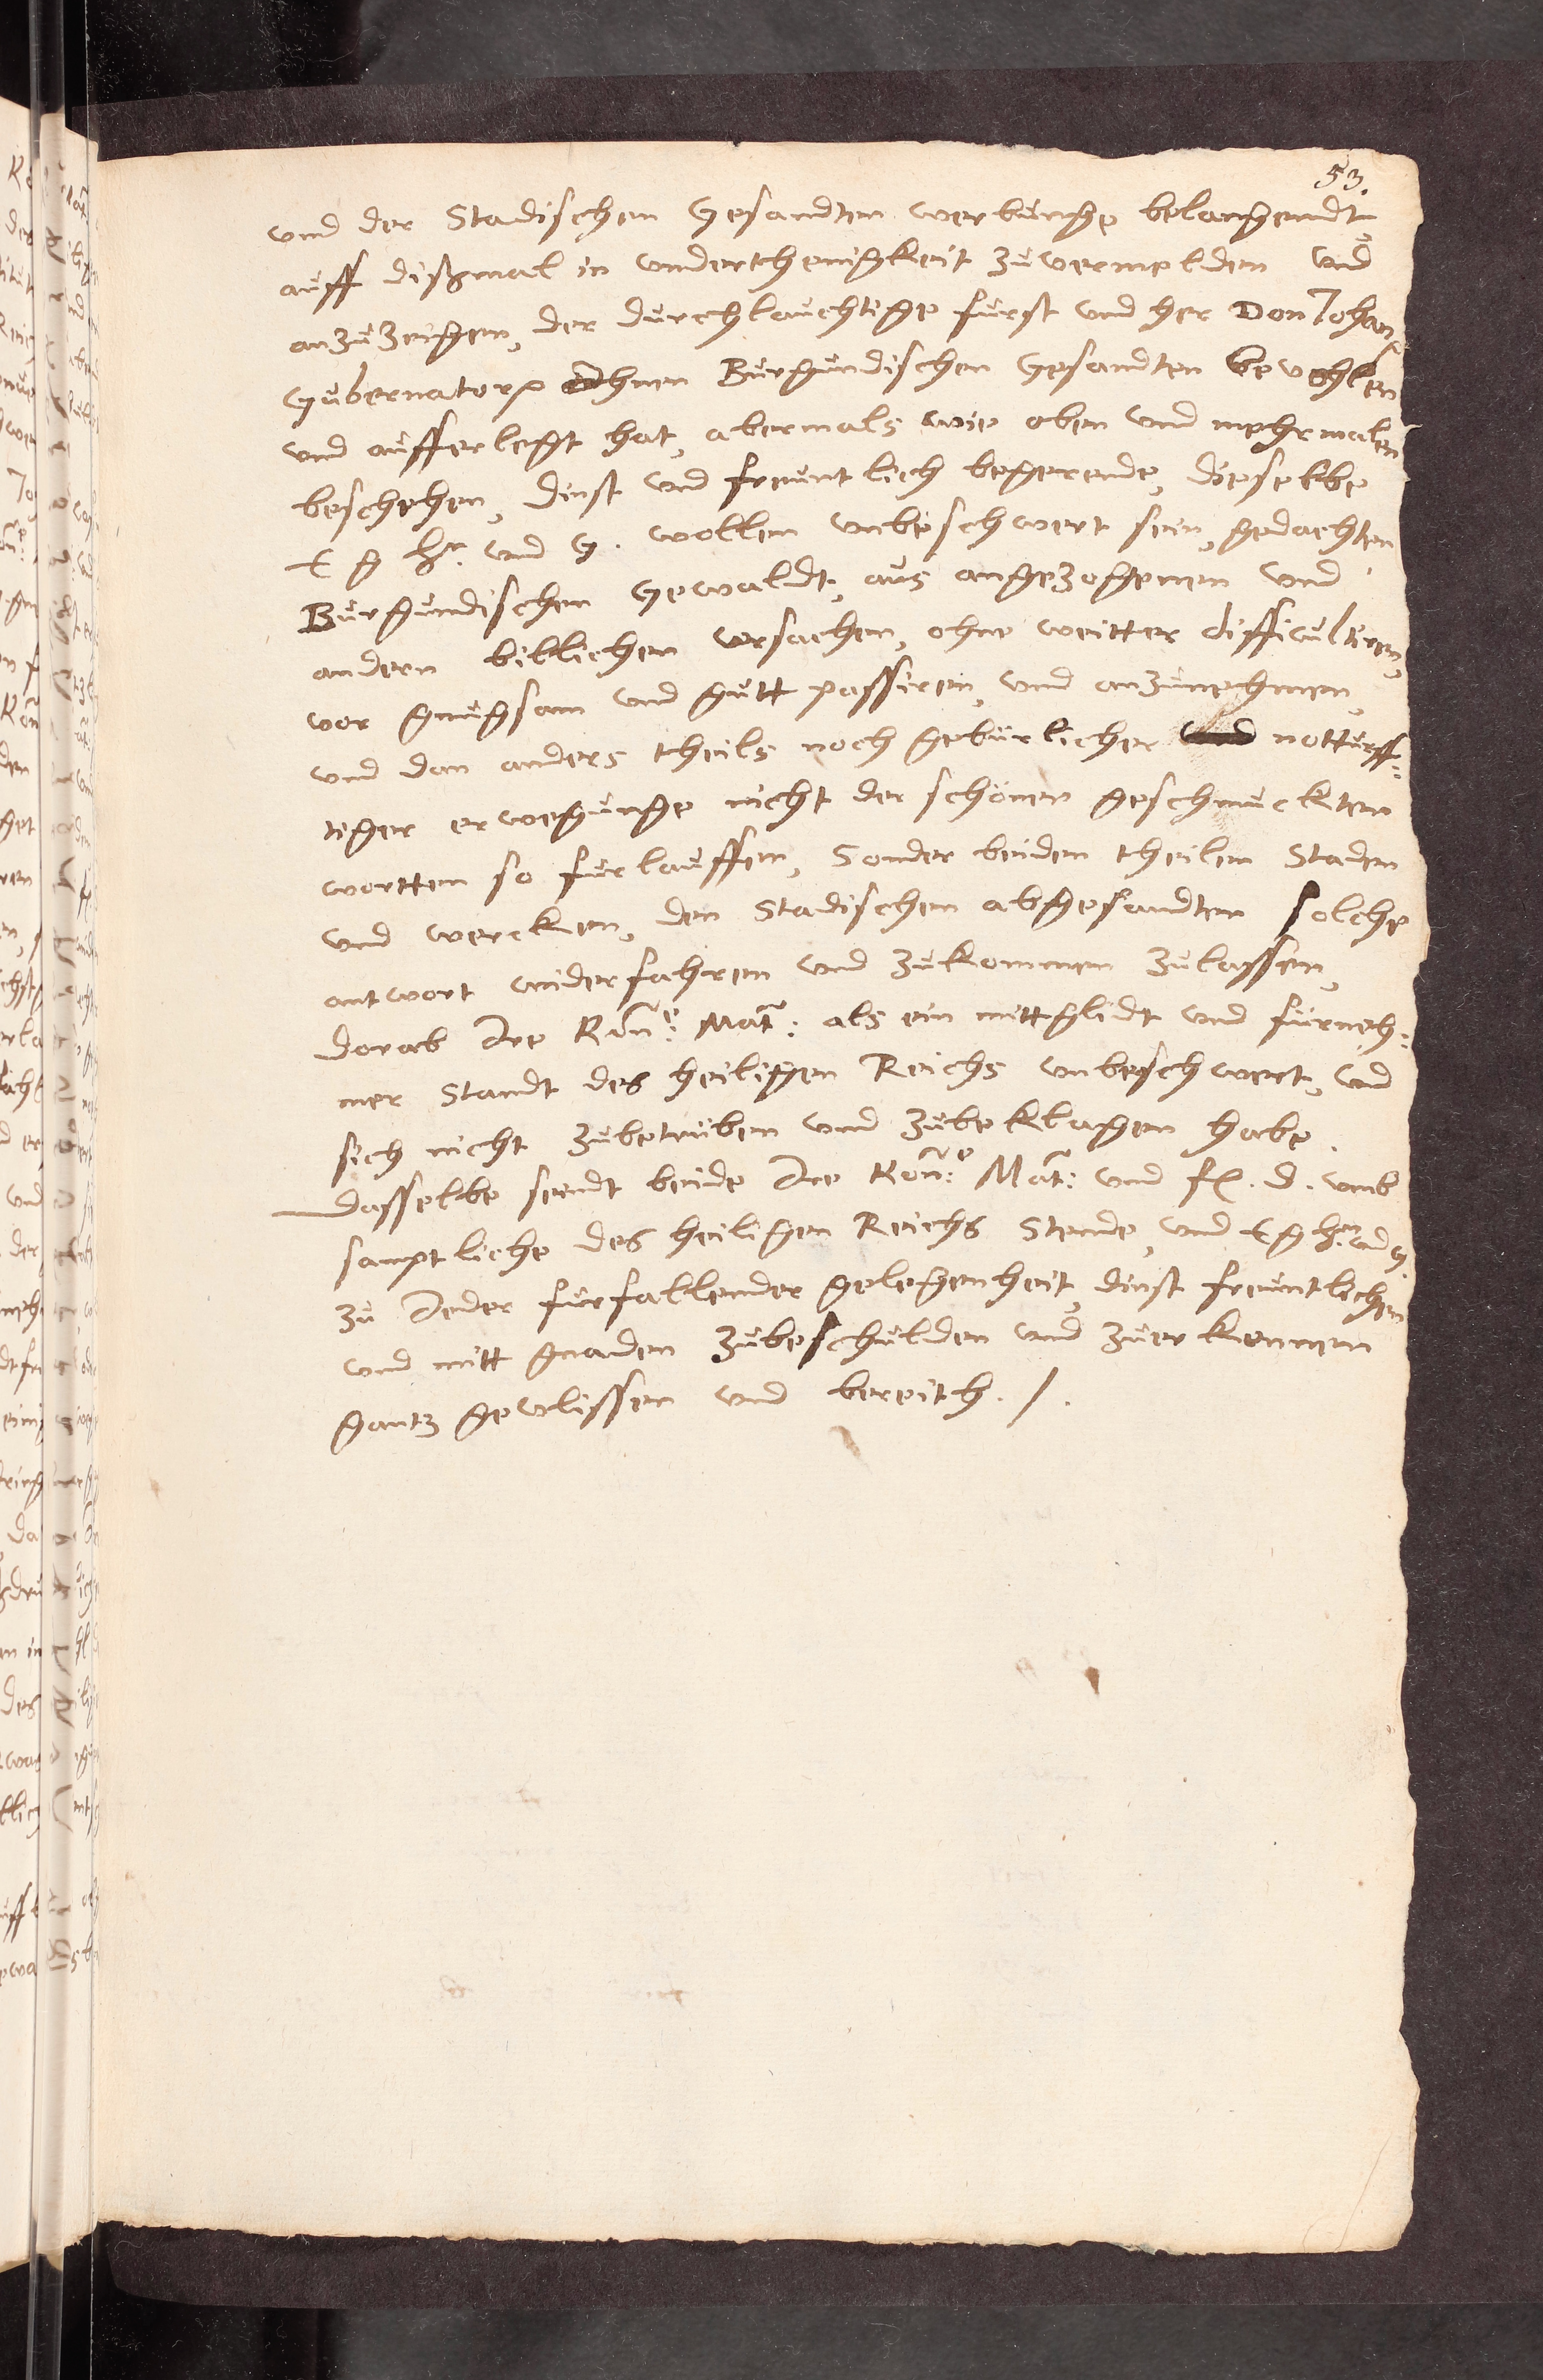 53.
und der Stadischen Gesandten werbunge belangendt,
auff dißmal in underthenigkeit zuvermelden und
anzuzeigen, der durchlauchtige furst und her Don Johan,
Gubernator Ihnen Burgundischen Gesandten bevohlen
und aufferlegt hat, abermals wie oben und mehrmalen
beschehen, dinst und freuntlich begerende, dieselbe
E g hn: und G. wollen unbeschwert sein, gedachten
Burgundischen Gewaldt, aus angezogenen und
andern billichen ursachen, ohne weitter difficultiren,
vor gnugsam und gutt passiren, und anzunehmen,
und dan anders theils noch geburlicher notturff:
tiger erwegunge nicht der schönen geschmuckten
wortten so furlauffen, Sonder beiden theilen Staden
und wercken, den Stadischen abgesandten solche
antwort widerfahren und zukommen zulassen,
dorab Ire Kon:e Mat: als ein mittglidt und furneh:
mer Standt des heiligen Reichs unbeschwert, und
sich nicht zubetruben und zubeklagen habe.
Dasselbe seindt beide Ire Kon:e Mat: und f. d. umb
samptliche des heiligen Reichs Stende, und E g hn: und G.
zu Jeder furfallender gelegenheit, dinst freuntlichen
und mitt gnaden zubeschulden und zuerkennen
gantz gevlissen und bereith. /.